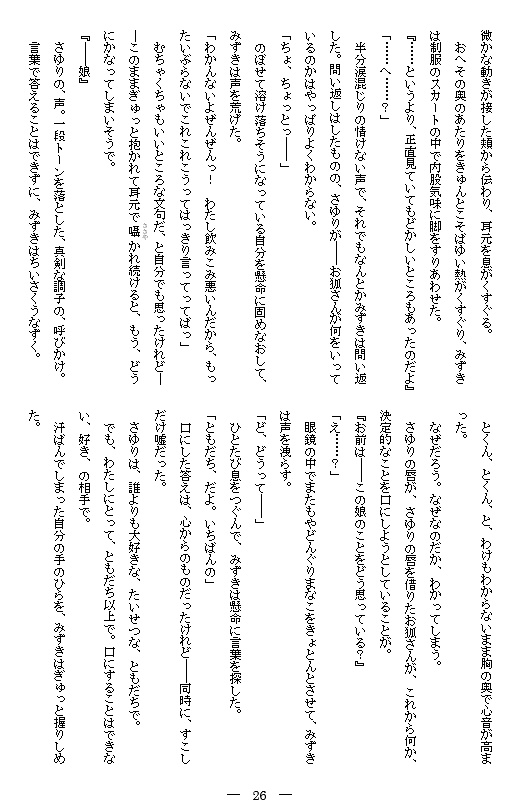 微かな動きが接した頬から伝わり、耳元を息がくすぐる。
　おへその奥のあたりをきゅんとこそばゆい熱がくすぐり、みずき
は制服のスカートの中で内股気味に脚をすりあわせた。
『……というより、正直見ていてもどかしいところもあったのだよ』
「……へ……？」
　半分涙混じりの情けない声で、それでもなんとかみずきは問い返
した。問い返しはしたものの、さゆりが――お狐さんが何をいって
いるのかはやっぱりよくわからない。
「ちょ、ちょっとっ――」
　のぼせて溶け落ちそうになっている自分を懸命に固めなおして、
みずきは声を荒げた。
「わかんないよぜんぜんっ！　わたし飲みこみ悪いんだから、もっ
たいぶらないでこれこれこうってはっきり言ってってばっ」
　むちゃくちゃもいいところな文句だ、と自分でも思ったけれど―
―このままぎゅっと抱かれて耳元で囁かれ続けると、もう、どう
にかなってしまいそうで。
ささや
『――娘』
　さゆりの、声。一段トーンを落とした、真剣な調子の、呼びかけ。
　言葉で答えることはできずに、みずきはちいさくうなずく。
　とくん、とくん、と、わけもわからないまま胸の奥で心音が高ま
った。
　なぜだろう。なぜなのだか、わかってしまう。
　さゆりの唇が、さゆりの唇を借りたお狐さんが、これから何か、
決定的なことを口にしようとしていることが。
『お前は――この娘のことをどう思っている？』
「え……？」
　眼鏡の中でまたもやどんぐりまなこをきょとんとさせて、みずき
は声を洩らす。
「ど、どうって――」
　ひとたび息をつぐんで、みずきは懸命に言葉を探した。
「ともだち、だよ。いちばんの」
　口にした答えは、心からのものだったけれど――同時に、すこし
だけ嘘だった。
　さゆりは、誰よりも大好きな、たいせつな、ともだちで。
　でも、わたしにとって、ともだち以上で。口にすることはできな
い、好き、の相手で。
　汗ばんでしまった自分の手のひらを、みずきはぎゅっと握りしめ
た。
― 26 ―